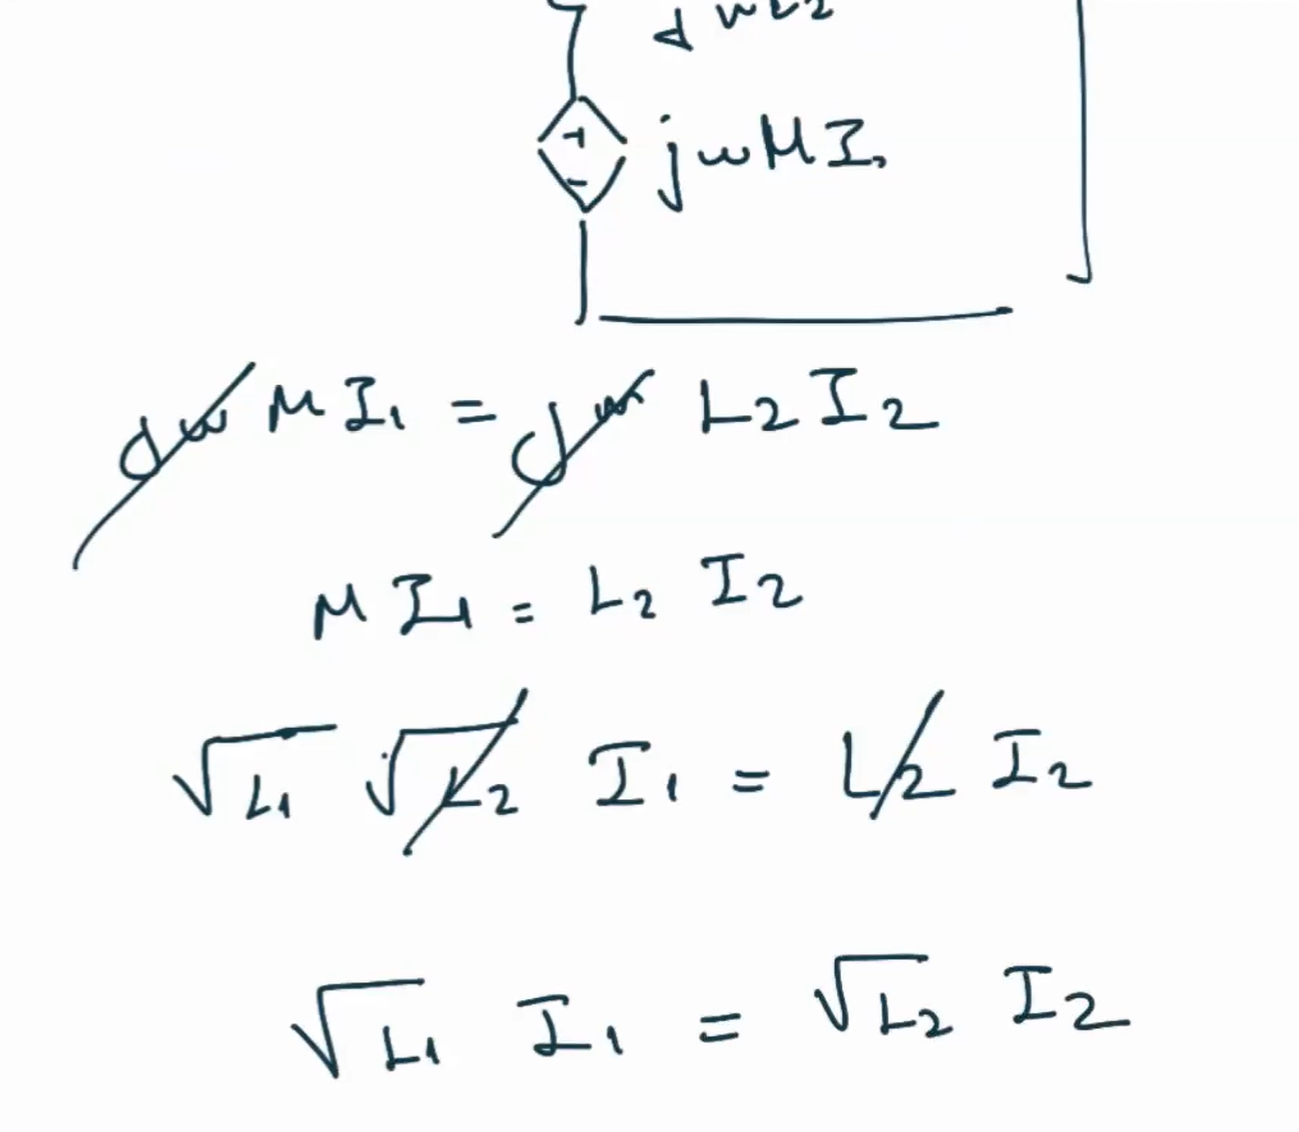 jwL2
+
jwMI1
-
jw M I1 = jw L2 I2
M I1 = L2 I2
√L1 √L2 I1 = L2 I2
√L1 I1 = √L2 I2